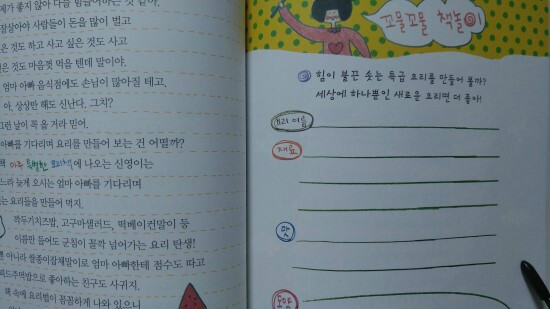 제가 좋지 않아 다들 힘들어하는 것 같아.
잡상아야 사람들이 돈을 많이 벌고
은 것도 하고 사고 싶은 것도 사고
은 것도 마음껏 먹을 텐데 말이야.
엄마 아빠 음식점에도 손님이 많아질 테고.
아, 상상만 해도 신난다. 그지?
그런 날이 꼭 올 거라 믿어.
아빠를 기다리며 요리를 만들어 보는 건 어떨까?
책 아주 특별한 요리책에 나오는 신영이는
느라 늦게 오시는 엄마 아빠를 기다리며
는 요리들을 만들어 먹지.
깍두기치즈밥, 고구마샐러드, 떡베이컨말이 등
이름만 들어도 군침이 꼴깍 넘어가는 요리 탄생!
뿐 아니라 쌀종이잡채말이로 엄마 아빠한테 점수도 따고
드주먹밥으로 좋아하는 친구도 사귀지.
책 속에 요리법이 꼼꼼하게 나와 있으니
꼬물꼬물 책놀이
힘이 불끈 솟는 특급 요리를 만들어 볼까?
세상에 하나뿐인 새로운 요리면 더 좋아!
요리 이름
재료
맛
모양